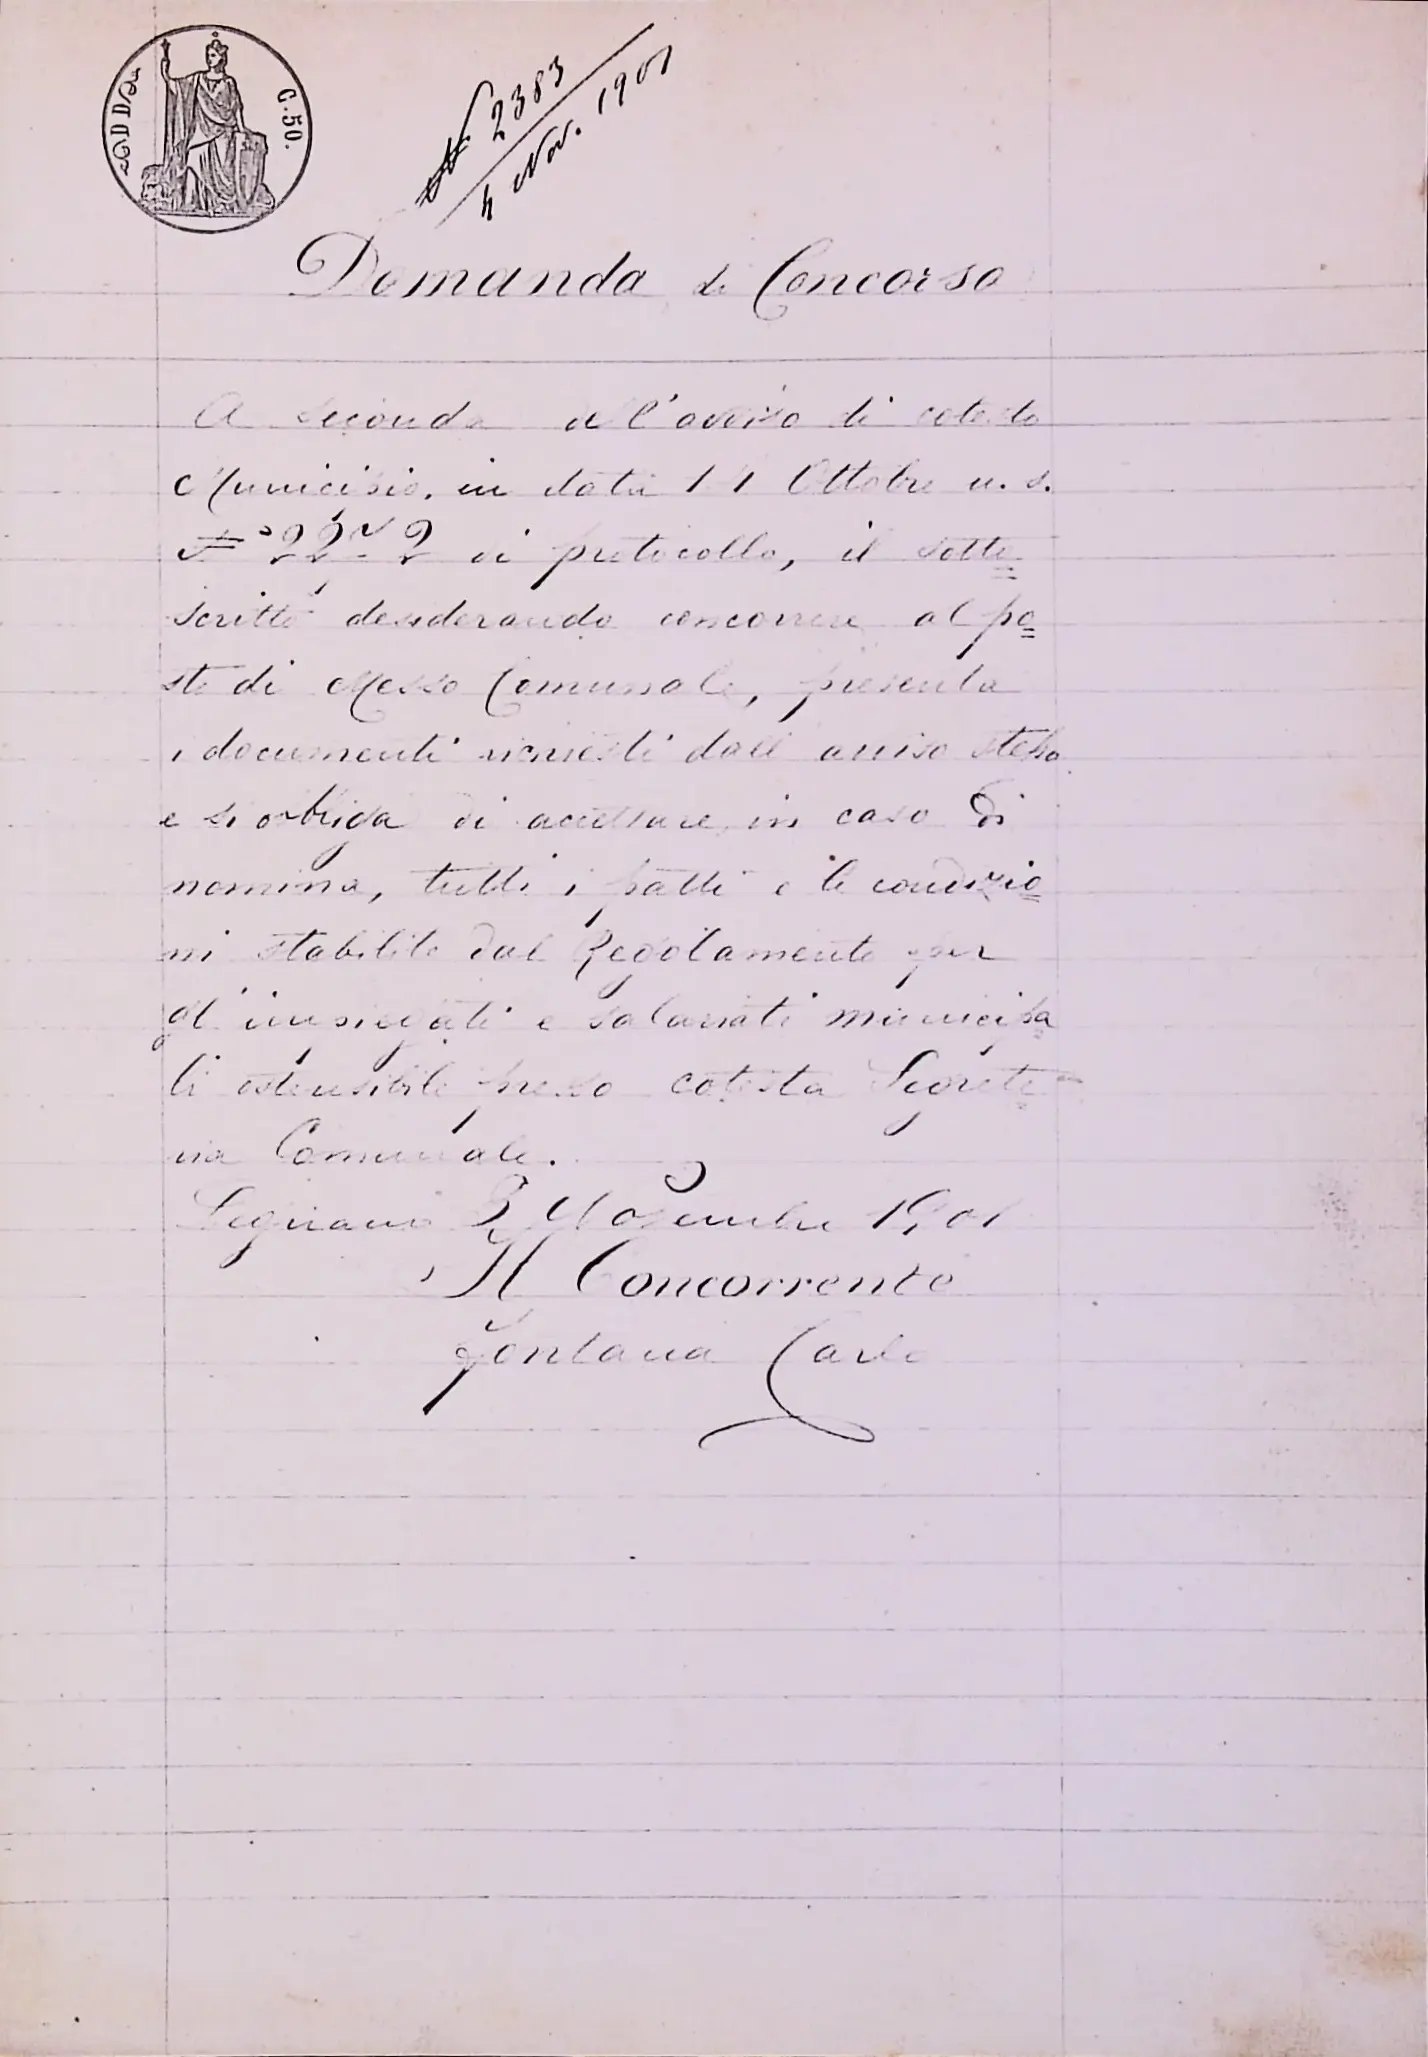 C. 50.
N 2383
4 Nov. 1901
Domanda di Concorso
A seconda dell'avviso di cotesto
Municipio, in data 14 Ottobre u. s.
di protocollo, il sotto=
scritto desiderando concorrere al po=
sto di Messo Comunale, presenta
i documenti richiesti dall'avviso stesso
e si obbliga di accettare, in caso di
nomina, tutti i patti e le condizio=
ni stabilite dal Regolamento per
gl'impiegati e salariati municipa
li ostensibile presso cotesta Segrete=
ria Comunale.
Legnano 3 Novembre 1901
Il Concorrente
Fontana Carlo